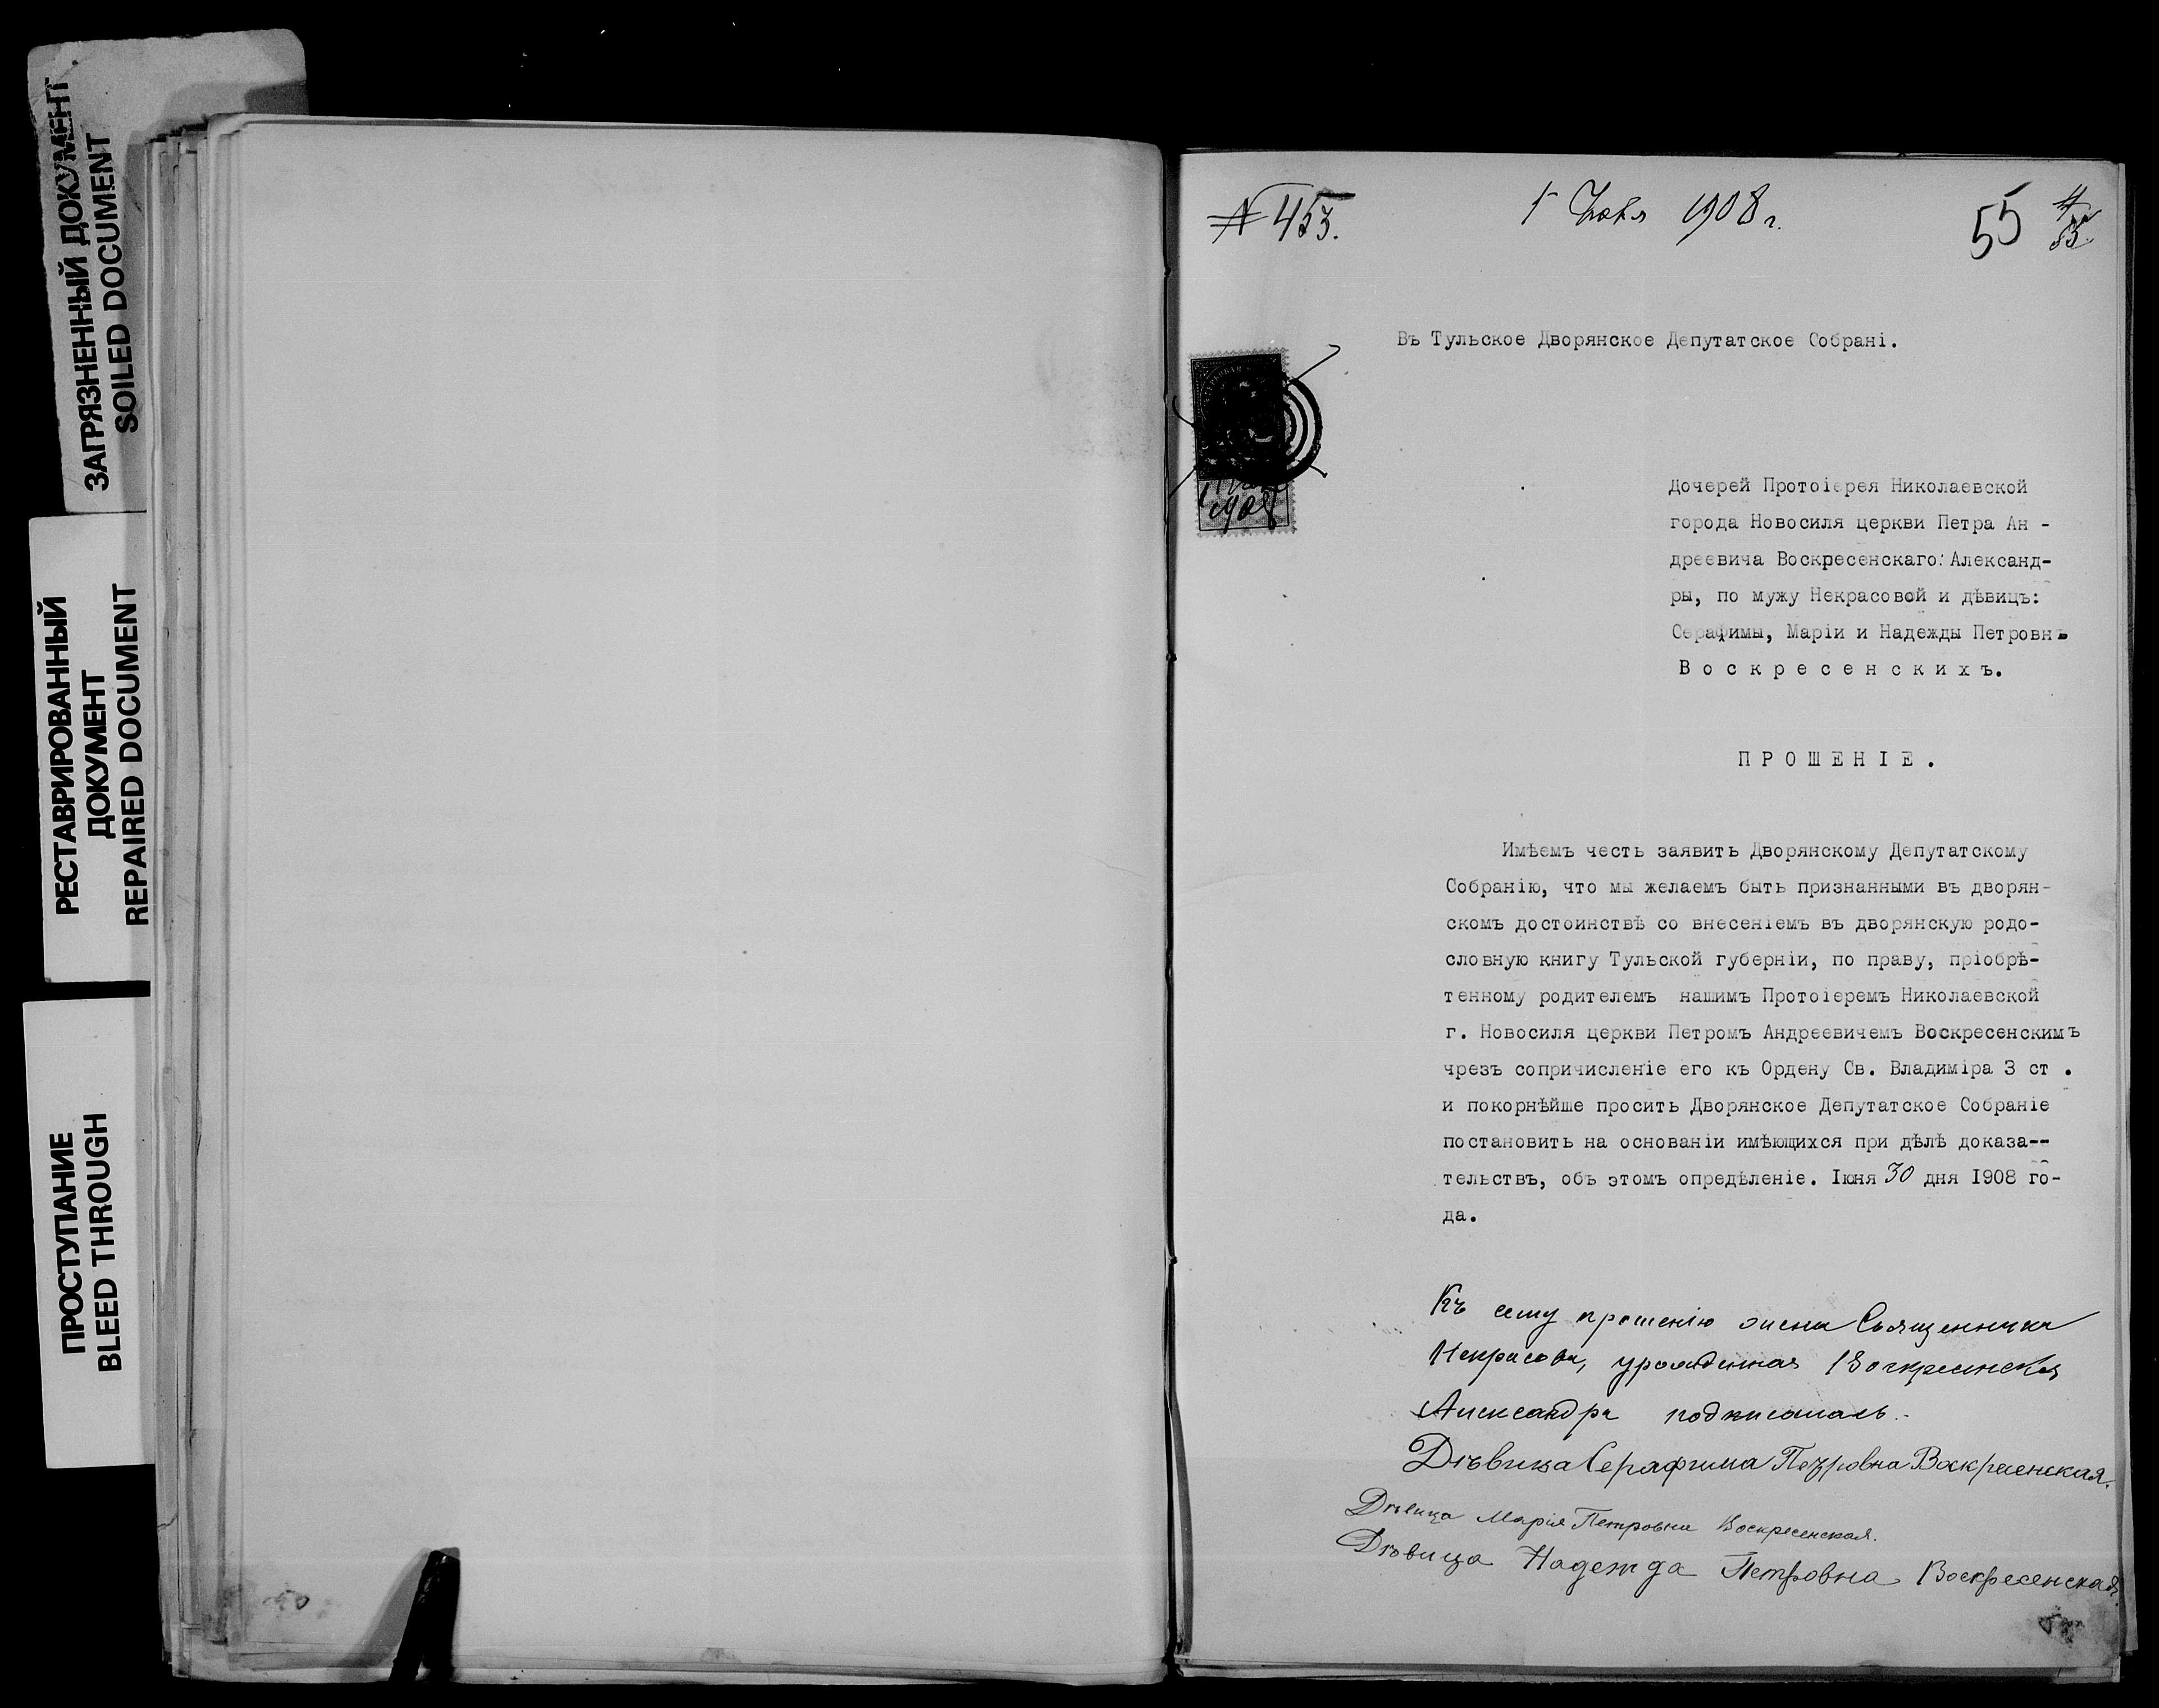 ЗАГРЯЗНЕННЫЙ ДОКУМЕНТ
SOILED DOCUMENT
РЕСТАВРИРОВАННЫЙ
ДОКУМЕНТ
REPAIRED DOCUMENT
ПРОСТУПАНИЕ
BLEED THROUGH
№ 453.
1908 г.
55
Въ Тульское Дворянское Депутатское Собрані.
1908
Дочерей Протоіерея Николаевской
города Новосиля церкви Петра Ан -
дреевича Воскресенскаго: Александ-
ры, по мужу Некрасовой и дѣвицъ:
Серафимы, Маріи и Надежды Петровнъ
Воскресенскихъ.
ПРОШЕНІЕ.
Имѣемъ честь заявить Дворянскому Депутатскому
Собранію, что мы желаемъ быть признанными въ дворян-
скомъ достоинствѣ со внесеніемъ въ дворянскую родо-
словную книгу Тульской губерніи, по праву, пріобрѣ-
тенному родителемъ нашимъ Протоіеремъ Николаевской
г. Новосиля церкви Петромъ Андреевичемъ Воскресенскимъ
чрезъ сопричисленіе его къ Ордену Св. Владиміра 3 ст .
и покорнѣйше просить Дворянское Депутатское Собраніе
постановить на основаніи имѣющихся при дѣлѣ доказа--
тельствъ, объ этомъ опредѣленіе. Іюня 30 дня 1908 го-
да.
Къ сему прошенію жена Священника
Некрасова, урожденная Воскресенская
Александра подписалась.
Дѣвица Серафима Петровна Воскресенская.
Дѣвица Марія Петровна Воскресенская.
Дѣвица Надежда Петровна Воскресенская.